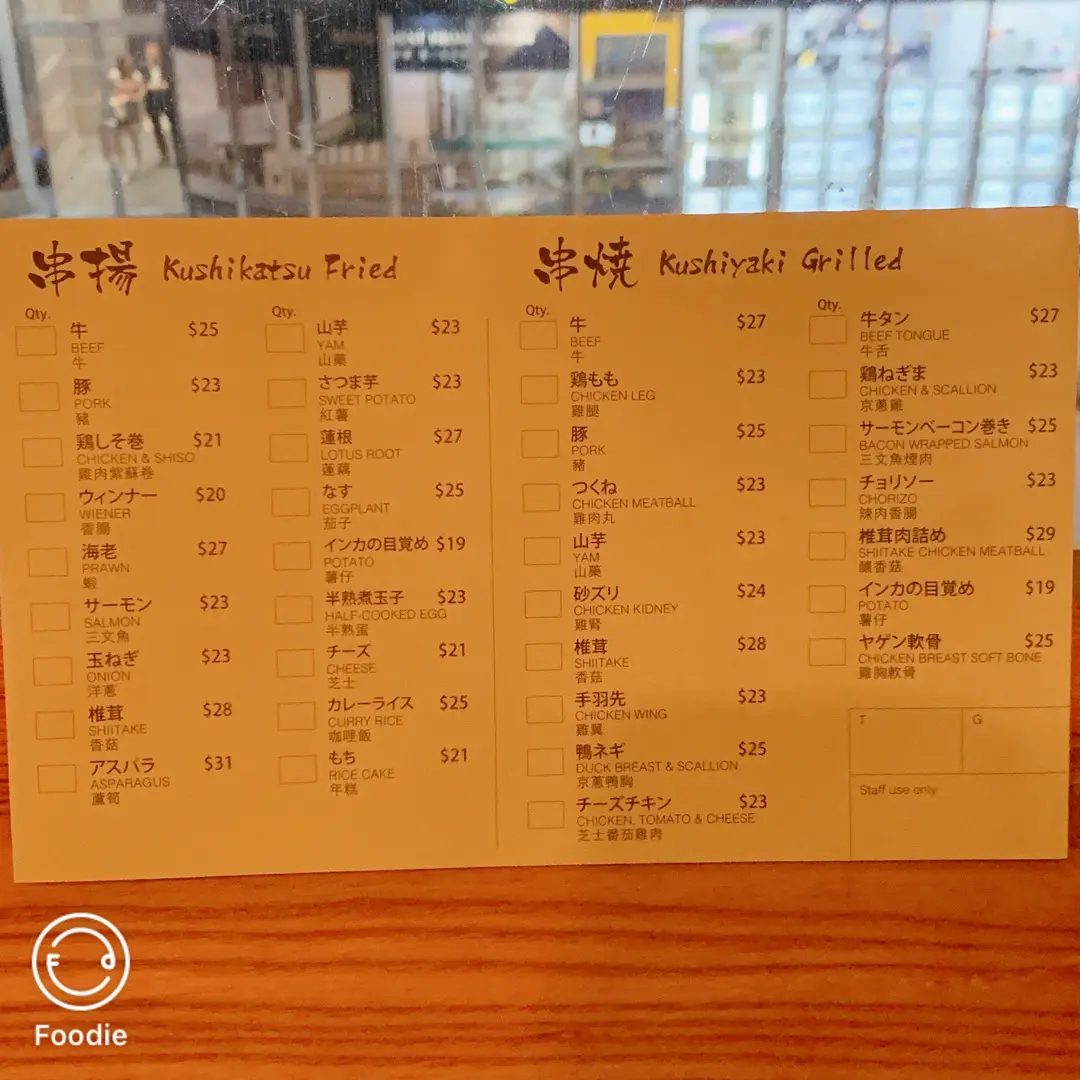 串揚 Kushikatsu Fried
Qty.
牛 $25
BEEF
牛
豚 $23
PORK
豬
鶏しそ巻 $21
CHICKEN & SHISO
雞肉紫蘇卷
ウィンナー $20
WIENER
香腸
海老 $27
PRAWN
蝦
サーモン $23
SALMON
三文魚
玉ねぎ $23
ONION
洋蔥
椎茸 $28
SHIITAKE
香菇
アスパラ $31
ASPARAGUS
蘆筍
Qty.
山芋 $23
YAM
山藥
さつま芋 $23
SWEET POTATO
紅薯
蓮根 $27
LOTUS ROOT
蓮藕
なす $25
EGGPLANT
茄子
インカの目覚め $19
POTATO
薯仔
半熟煮玉子 $23
HALF-COOKED EGG
半熟蛋
チーズ $21
CHEESE
芝士
カレーライス $25
CURRY RICE
咖哩飯
もち $21
RICE CAKE
年糕
串焼 Kushiyaki Grilled
Qty.
牛 $27
BEEF
牛
鶏もも $23
CHICKEN LEG
雞腿
豚 $25
PORK
豬
つくね $23
CHICKEN MEATBALL
雞肉丸
山芋 $23
YAM
山藥
砂ズリ $24
CHICKEN KIDNEY
雞腎
椎茸 $28
SHIITAKE
香菇
手羽先 $23
CHICKEN WING
雞翼
鴨ネギ $25
DUCK BREAST & SCALLION
京蔥鴨胸
チーズチキン $23
CHICKEN, TOMATO & CHEESE
芝士番茄雞肉
Qty.
牛タン $27
BEEF TONGUE
牛舌
鶏ねぎま $23
CHICKEN & SCALLION
京蔥雞
サーモンベーコン巻き $25
BACON WRAPPED SALMON
三文魚煙肉
チョリソー $23
CHORIZO
辣肉香腸
椎茸肉詰め $29
SHIITAKE CHICKEN MEATBALL
釀香菇
インカの目覚め $19
POTATO
薯仔
ヤゲン軟骨 $25
CHICKEN BREAST SOFT BONE
雞胸軟骨
T G
Staff use only
Foodie